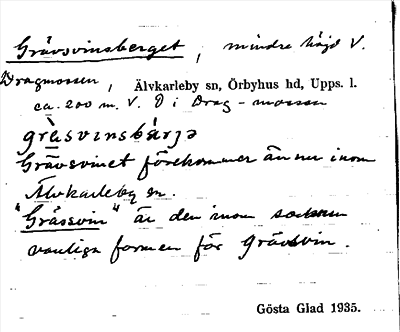 Grävsvinsberget, mindre höjd V.
Dragmossen, Älvkarleby sn, Örbyhus hd, Upps. l.
ca. 200 m. V. i Drag-mossen
gràsvinsbàrjə
Grävsvinet förekommer ännu inom
Älvkarleby sn.
"Grässvin" är den inom socknen
vanliga formen för grävsvin.
Gösta Glad 1935.